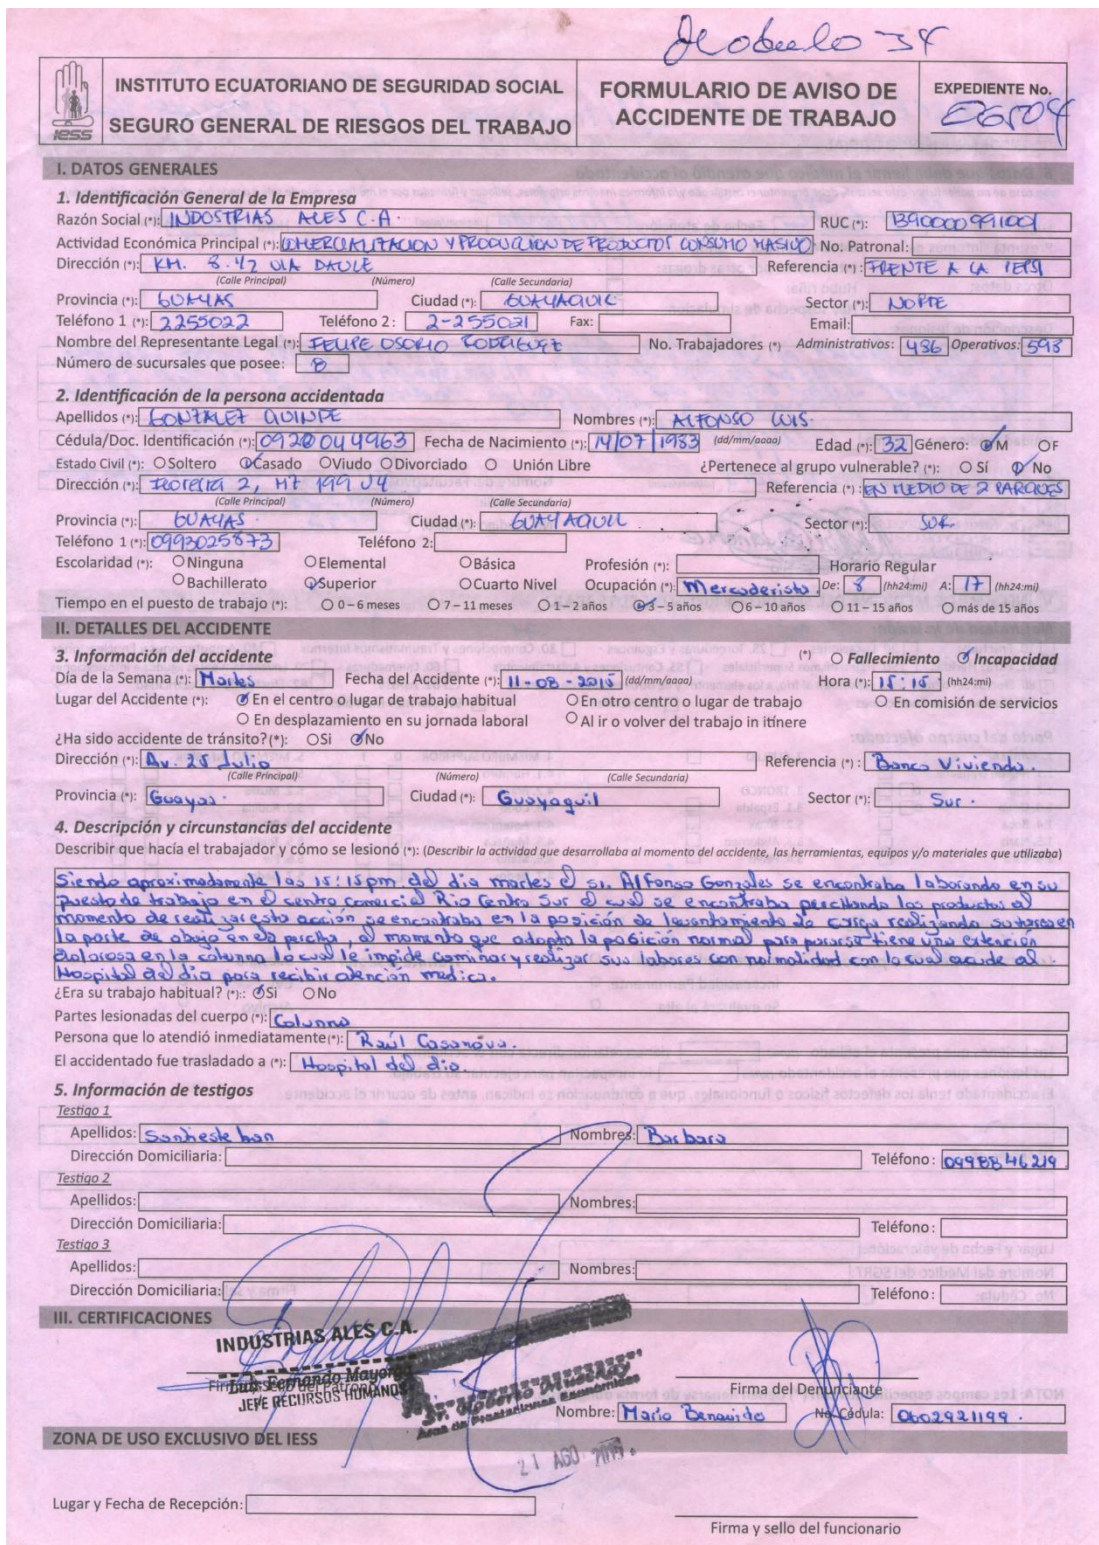 INSTITUTO ECUATORIANO DE SEGURIDAD SOCIAL
SEGURO GENERAL DE RIESGOS DEL TRABAJO
IESS
FORMULARIO DE AVISO DE ACCIDENTE DE TRABAJO
EXPEDIENTE No.
I. DATOS GENERALES
1. Identificación General de la Empresa
Razón Social (*): INDUSTRIAS ALES C.A. RUC (*): 1390000991001
Actividad Económica Principal (*): COMERCIALIZACION Y PRODUCCION DE PRODUCTOS CONSUMO MASIVO No. Patronal:
Dirección (*): KM. 8.42 VIA DAULE Referencia (*): FRENTE A LA PEPSI
(Calle Principal) (Número) (Calle Secundaria)
Provincia (*): GUAYAS Ciudad (*): GUAYAQUIL Sector (*): NORTE
Teléfono 1 (*): 2255022 Teléfono 2: 2-255021 Fax: Email:
Nombre del Representante Legal (*): FELIPE OSORIO RODRIGUEZ No. Trabajadores (*) Administrativos: 436 Operativos: 593
Número de sucursales que posee: 8
2. Identificación de la persona accidentada
Apellidos (*): GONZALEZ QUINDE Nombres (*): ALFONSO LUIS.
Cédula/Doc. Identificación (*): 0920044963 Fecha de Nacimiento (*): 14/07/1983 (dd/mm/aaaa) Edad (*): 32 Género: M F
Estado Civil (*): Soltero Casado Viudo Divorciado Unión Libre ¿Pertenece al grupo vulnerable? (*): Sí No
Dirección (*): FLORESTA 2, MZ 199 V4 Referencia (*): EN MEDIO DE 2 PARQUES
(Calle Principal) (Número) (Calle Secundaria)
Provincia (*): GUAYAS. Ciudad (*): GUAYAQUIL Sector (*): SUR
Teléfono 1 (*): 0993025873 Teléfono 2:
Escolaridad (*): Ninguna Elemental Básica Profesión (*): Horario Regular
Bachillerato Superior Cuarto Nivel Ocupación (*): Mercaderista De: 8 (hh24:mi) A: 17 (hh24:mi)
Tiempo en el puesto de trabajo (*): 0 – 6 meses 7 – 11 meses 1 – 2 años 3 – 5 años 6 – 10 años 11 – 15 años más de 15 años
II. DETALLES DEL ACCIDENTE
3. Información del accidente (*) Fallecimiento Incapacidad
Día de la Semana (*): Martes Fecha del Accidente (*): 11-08-2015 (dd/mm/aaaa) Hora (*): 15:15 (hh24:mi)
Lugar del Accidente (*): En el centro o lugar de trabajo habitual En otro centro o lugar de trabajo En comisión de servicios
En desplazamiento en su jornada laboral Al ir o volver del trabajo in itinere
¿Ha sido accidente de tránsito?(*): Si No
Dirección (*): Av. 25 Julio Referencia (*): Banco Vivienda.
(Calle Principal) (Número) (Calle Secundaria)
Provincia (*): Guayas. Ciudad (*): Guayaquil Sector (*): Sur.
4. Descripción y circunstancias del accidente
Describir que hacía el trabajador y cómo se lesionó (*): (Describir la actividad que desarrollaba al momento del accidente, las herramientas, equipos y/o materiales que utilizaba)
Siendo aproximadamente las 15:15pm del dia martes el sr. Alfonso Gonzales se encontraba laborando en su
puesto de trabajo en el centro comercial Rio Centro Sur el cual se encontraba perchando los productos al
momento de realizar esta acción se encontraba en la posición de levantamiento de carga realizando su tarea en
la parte de abajo en la percha, al momento que adopta la posición normal para pararse tiene una extención
dolorosa en la columna lo cual le impide caminar y realizar sus labores con normalidad con lo cual acude al
Hospital del dia para recibir atención medica.
¿Era su trabajo habitual? (*): Si No
Partes lesionadas del cuerpo (*): Columna
Persona que lo atendió inmediatamente(*): Raúl Casanova.
El accidentado fue trasladado a (*): Hospital del dia.
5. Información de testigos
Testigo 1
Apellidos: Santiesteban Nombres: Barbara
Dirección Domiciliaria: Teléfono: 0998846219
Testigo 2
Apellidos: Nombres:
Dirección Domiciliaria: Teléfono:
Testigo 3
Apellidos: Nombres:
Dirección Domiciliaria: Teléfono:
III. CERTIFICACIONES
INDUSTRIAS ALES C.A.
Luis Fernando Mayorga
JEFE RECURSOS HUMANOS
Firma del Denunciante
Nombre: Mario Benavides No. Cédula: 0602921199.
ZONA DE USO EXCLUSIVO DEL IESS
21 AGO 2015
Lugar y Fecha de Recepción:
Firma y sello del funcionario